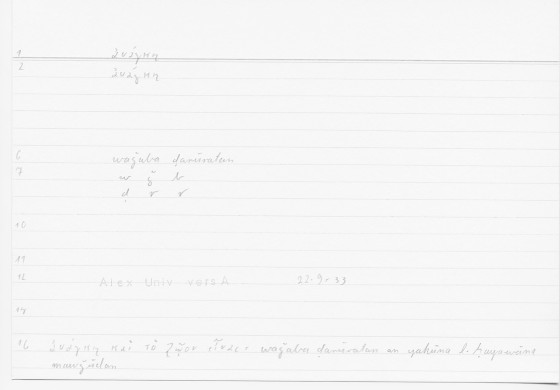 1 ἀνάγκη
2 ἀνάγκη
6 waǧaba ḍarūratan
7 w ǧ b
ḍ r r
10
11
12 Alex Univ versA 22.9-33
14
16 ἀνάγκη καὶ τὸ ζῷον εἶναι: waǧaba ḍarūratan an yakūna l-ḥayawānu
mawǧūdan